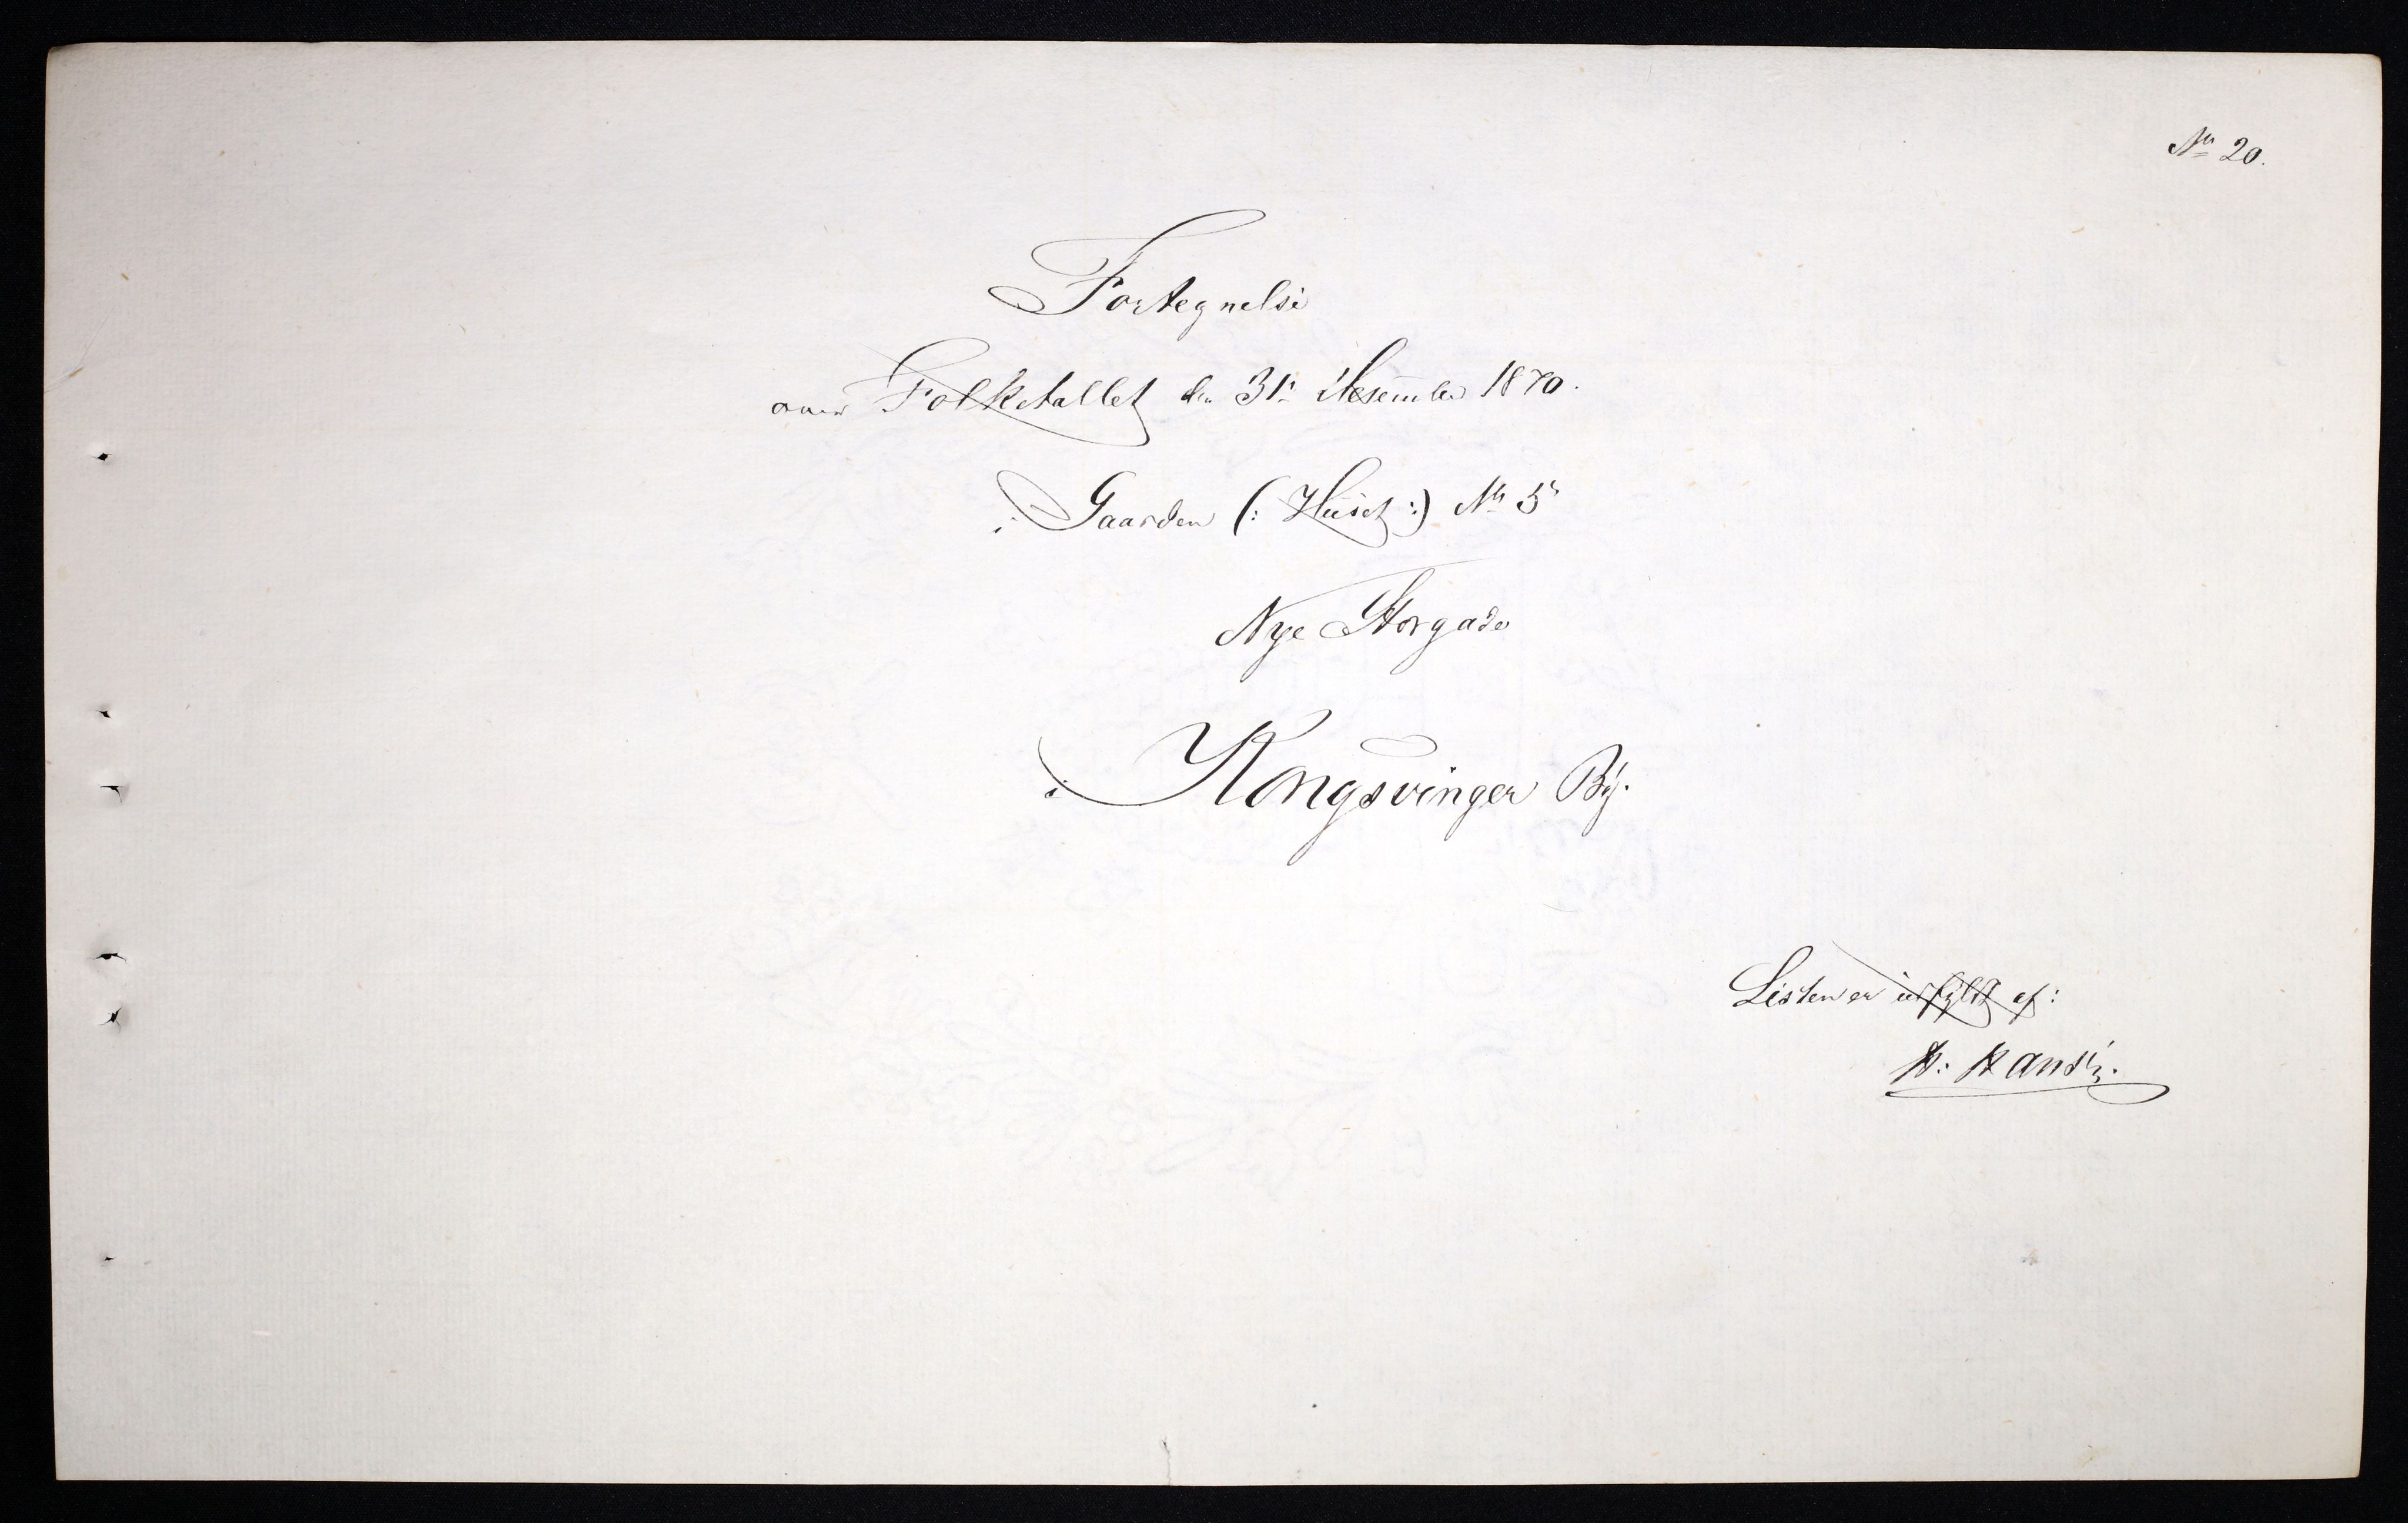 No 20.
Fortegnelse
over Folketallet den 31te Desember 1870.
i Gaarden (: Huset :) No 5
Nye Storgade
i Kongsvinger By.
Listen er udfyldt af: